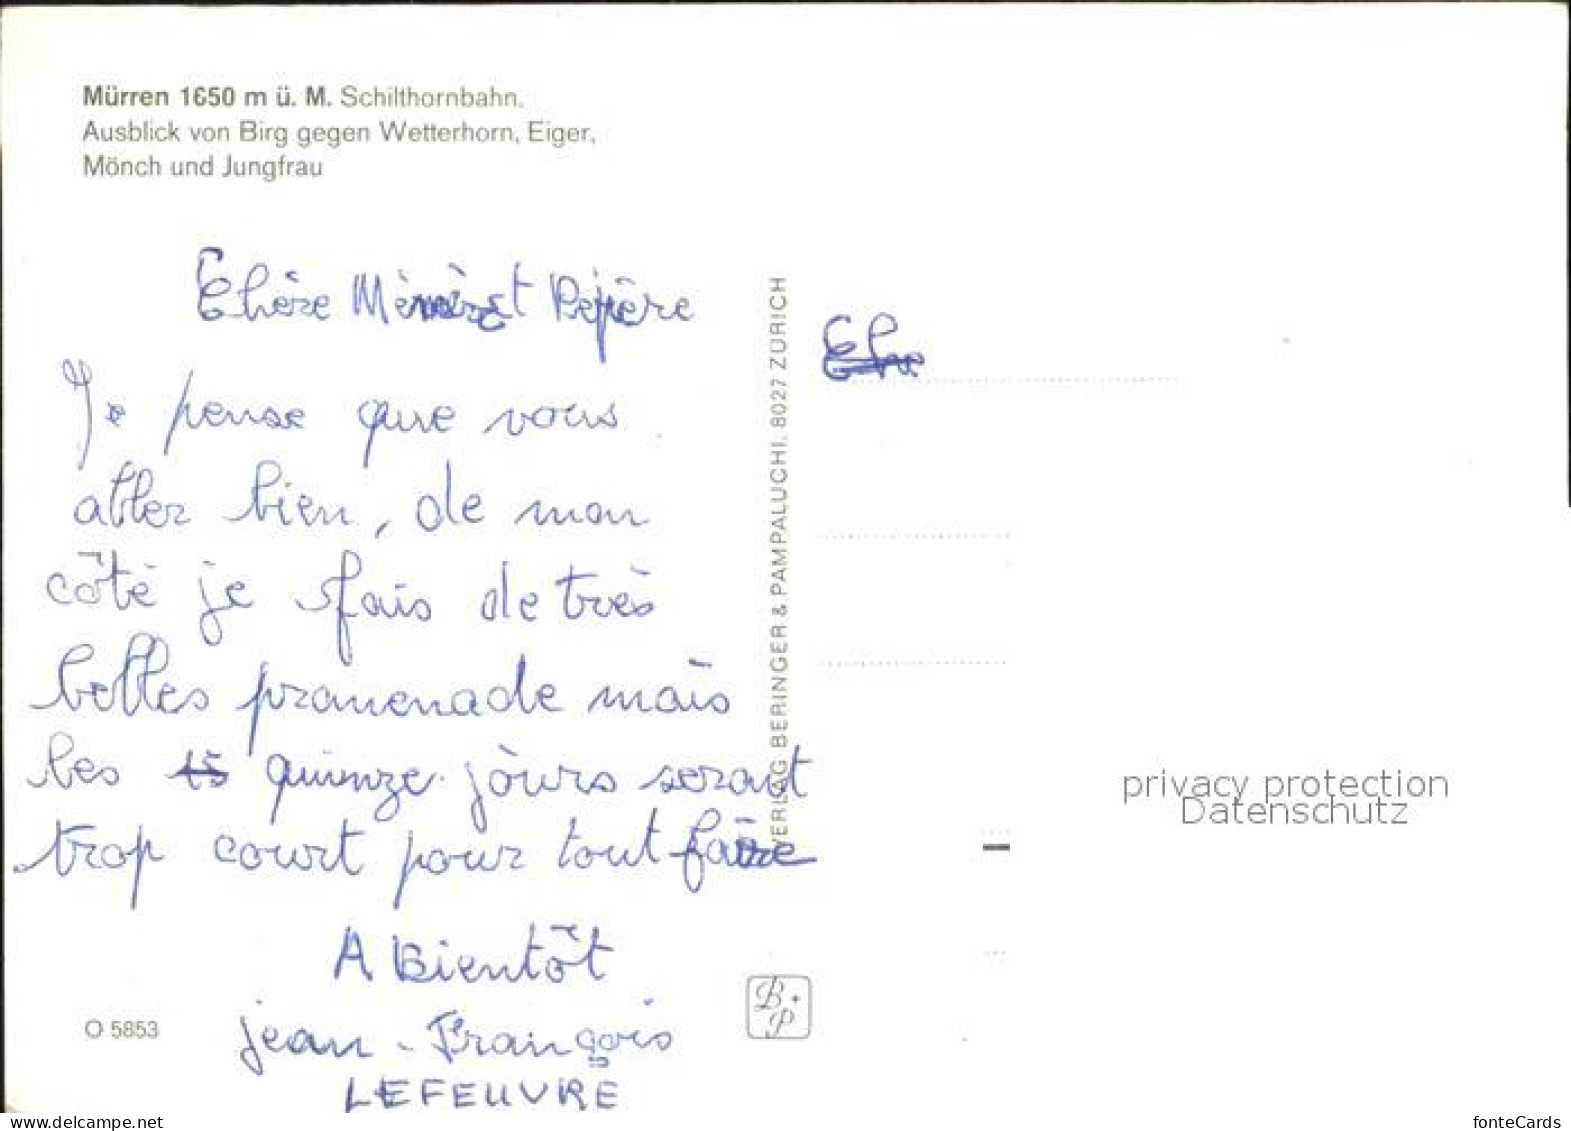 Mürren 1650 m ü. M. Schilthornbahn.
Ausblick von Birg gegen Wetterhorn, Eiger,
Mönch und Jungfrau
Chère Mémère et Pepère
Je pense que vous
aller bien, de mon
côté je fais de très
belles promenade mais
les 15 quinze jours seront
trop court pour tout faire
A Bientôt
jean-François
LEFEUVRE
O 5853
VERLAG BERINGER & PAMPALUCHI, 8027 ZÜRICH
B+P
Che
privacy protection
Datenschutz
www.delcampe.net
fonteCards